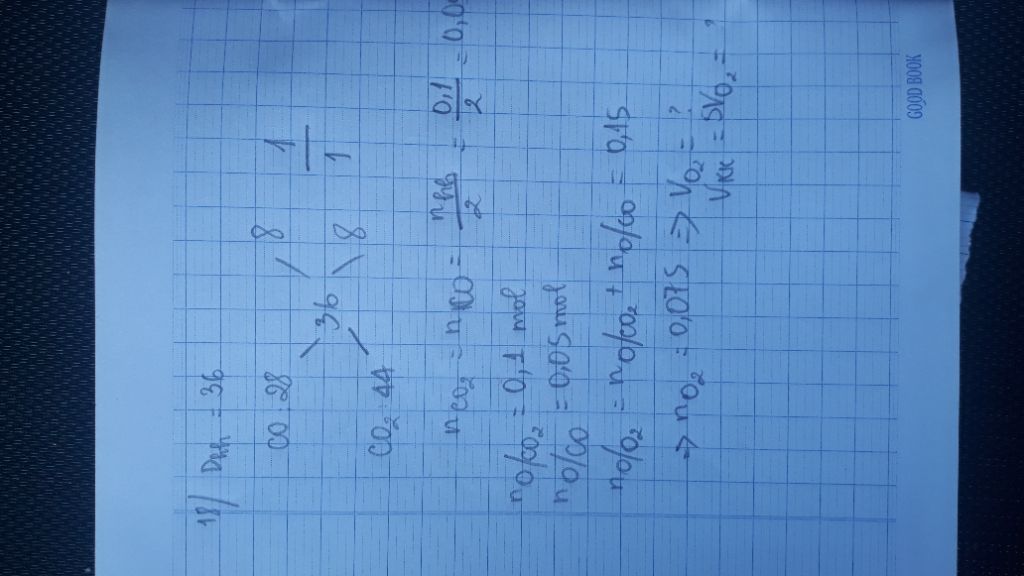 18/ Dhh = 36
CO : 28 8 1
36
CO₂ : 44 8 1
nCO₂ = nCO = nhh/2 = 0,1/2 = 0,0
nO/CO₂ = 0,1 mol
nO/CO = 0,05 mol
nO/O₂ = nO/CO₂ + nO/CO = 0,15
=> nO₂ = 0,075 => VO₂ = ?
VKK = 5VO₂ = ?
GOOD BOOK